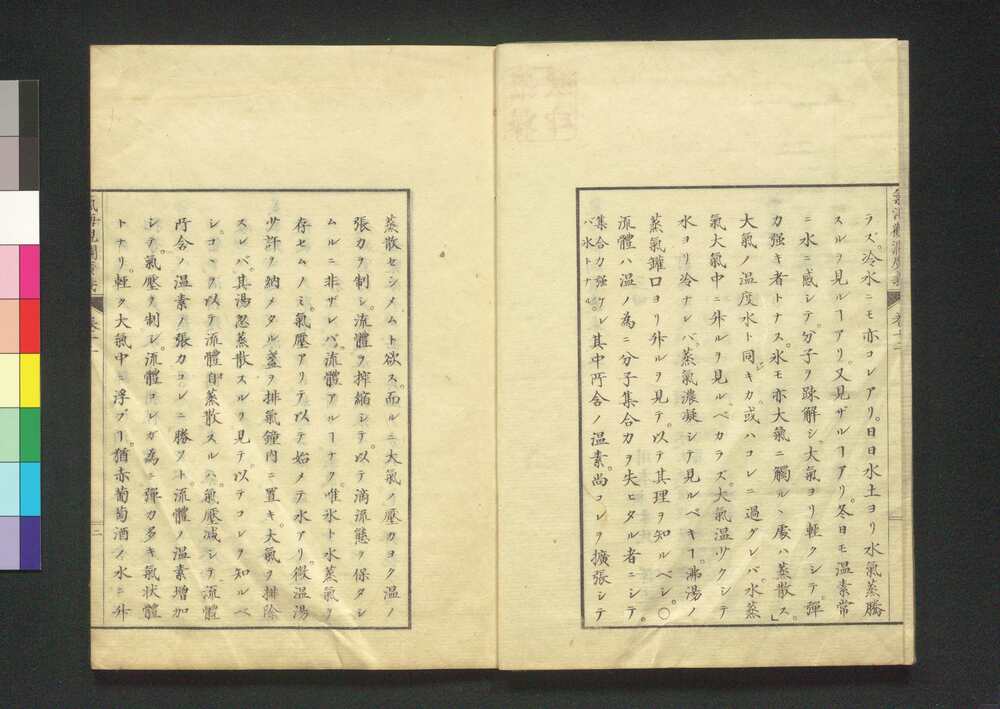 ラズ。冷水ニモ亦コレアリ。日日水土ヨリ水氣蒸騰
スルヲ見ルヿアリ。又見ザルヿアリ。冬日モ温素常
ニ水ニ感シテ。分子ヲ踈解シ。大氣ヨリ輕クシテ。彈
力强キ者トナス。氷モ亦大氣ニ觸ルヽ處ハ蒸散ス。」
大氣ノ温度水ト同キカ。或ハコレニ過グレバ。水蒸
氣大氣中ニ升ルヲ見ルベカラズ。大氣温少クシテ
水ヨリ冷ナレバ。蒸氣濃凝シテ見ルベキヿ。沸湯ノ
蒸氣罐口ヨリ升ルヲ見テ。以テ其理ヲ知ルベシ。○
流體ハ温ノ為ニ分子集合力ヲ失ヒタル者ニシテ。
集合力强ケレバ氷トナル。
其中所含ノ温素。尚コレヲ擴張シテ
蒸散セシメムト欲ス。而ルニ大氣ノ壓力ヨク温ノ
張力ヲ制シ。流體ヲ搾縮シテ。以テ滴流態ヲ保タシ
ムルニ非ザレバ。流體アルヿナク。唯氷ト水蒸氣ヲ
存セムノミ。氣壓アリテ。以テ始メテ水アリ。微温湯
少許ヲ納メタル盞ヲ排氣鐘内ニ置キ。大氣ヲ排除
スレバ。其湯忽蒸散スルヲ見テ。以テコレヲ知ルベ
シ。コヽヲ以テ流體自蒸散スルハ。氣壓减シテ。流體
所含ノ温素ノ張力コレニ勝ツト。流體ノ温素増加
シテ。氣壓ヲ制シ。流體コレガ為ニ彈力多キ氣状體
トナリ。輕ク大氣中ニ浮ブヿ。猶赤葡萄酒ノ水ニ升
二